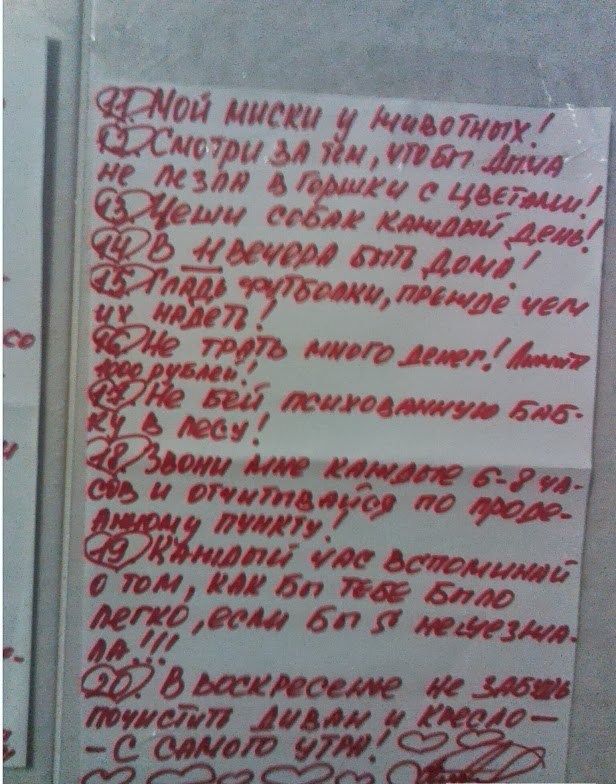 11. Мой миски у животных!
12. Смотри за тем, чтобы Дыма
не лезла в горшки с цветами!
13. Чеши собак каждый день!
14. В 11 вечера быть дома!
15. Гладь футболки, прежде чем
их надеть!
16. Не трать много денег! Лимит
1000 рублей!
17. Не бей психованную баб-
ку в лесу!
18. Звони мне каждые 6-8 ча-
сов и отчитывайся по проде-
ланному пункту!
19. Каждый час вспоминай
о том, как бы тебе было
легко, если бы я не уезжа-
ла!!!
20. В воскресение не забудь
почистить диван и кресло –
– с самого утра!